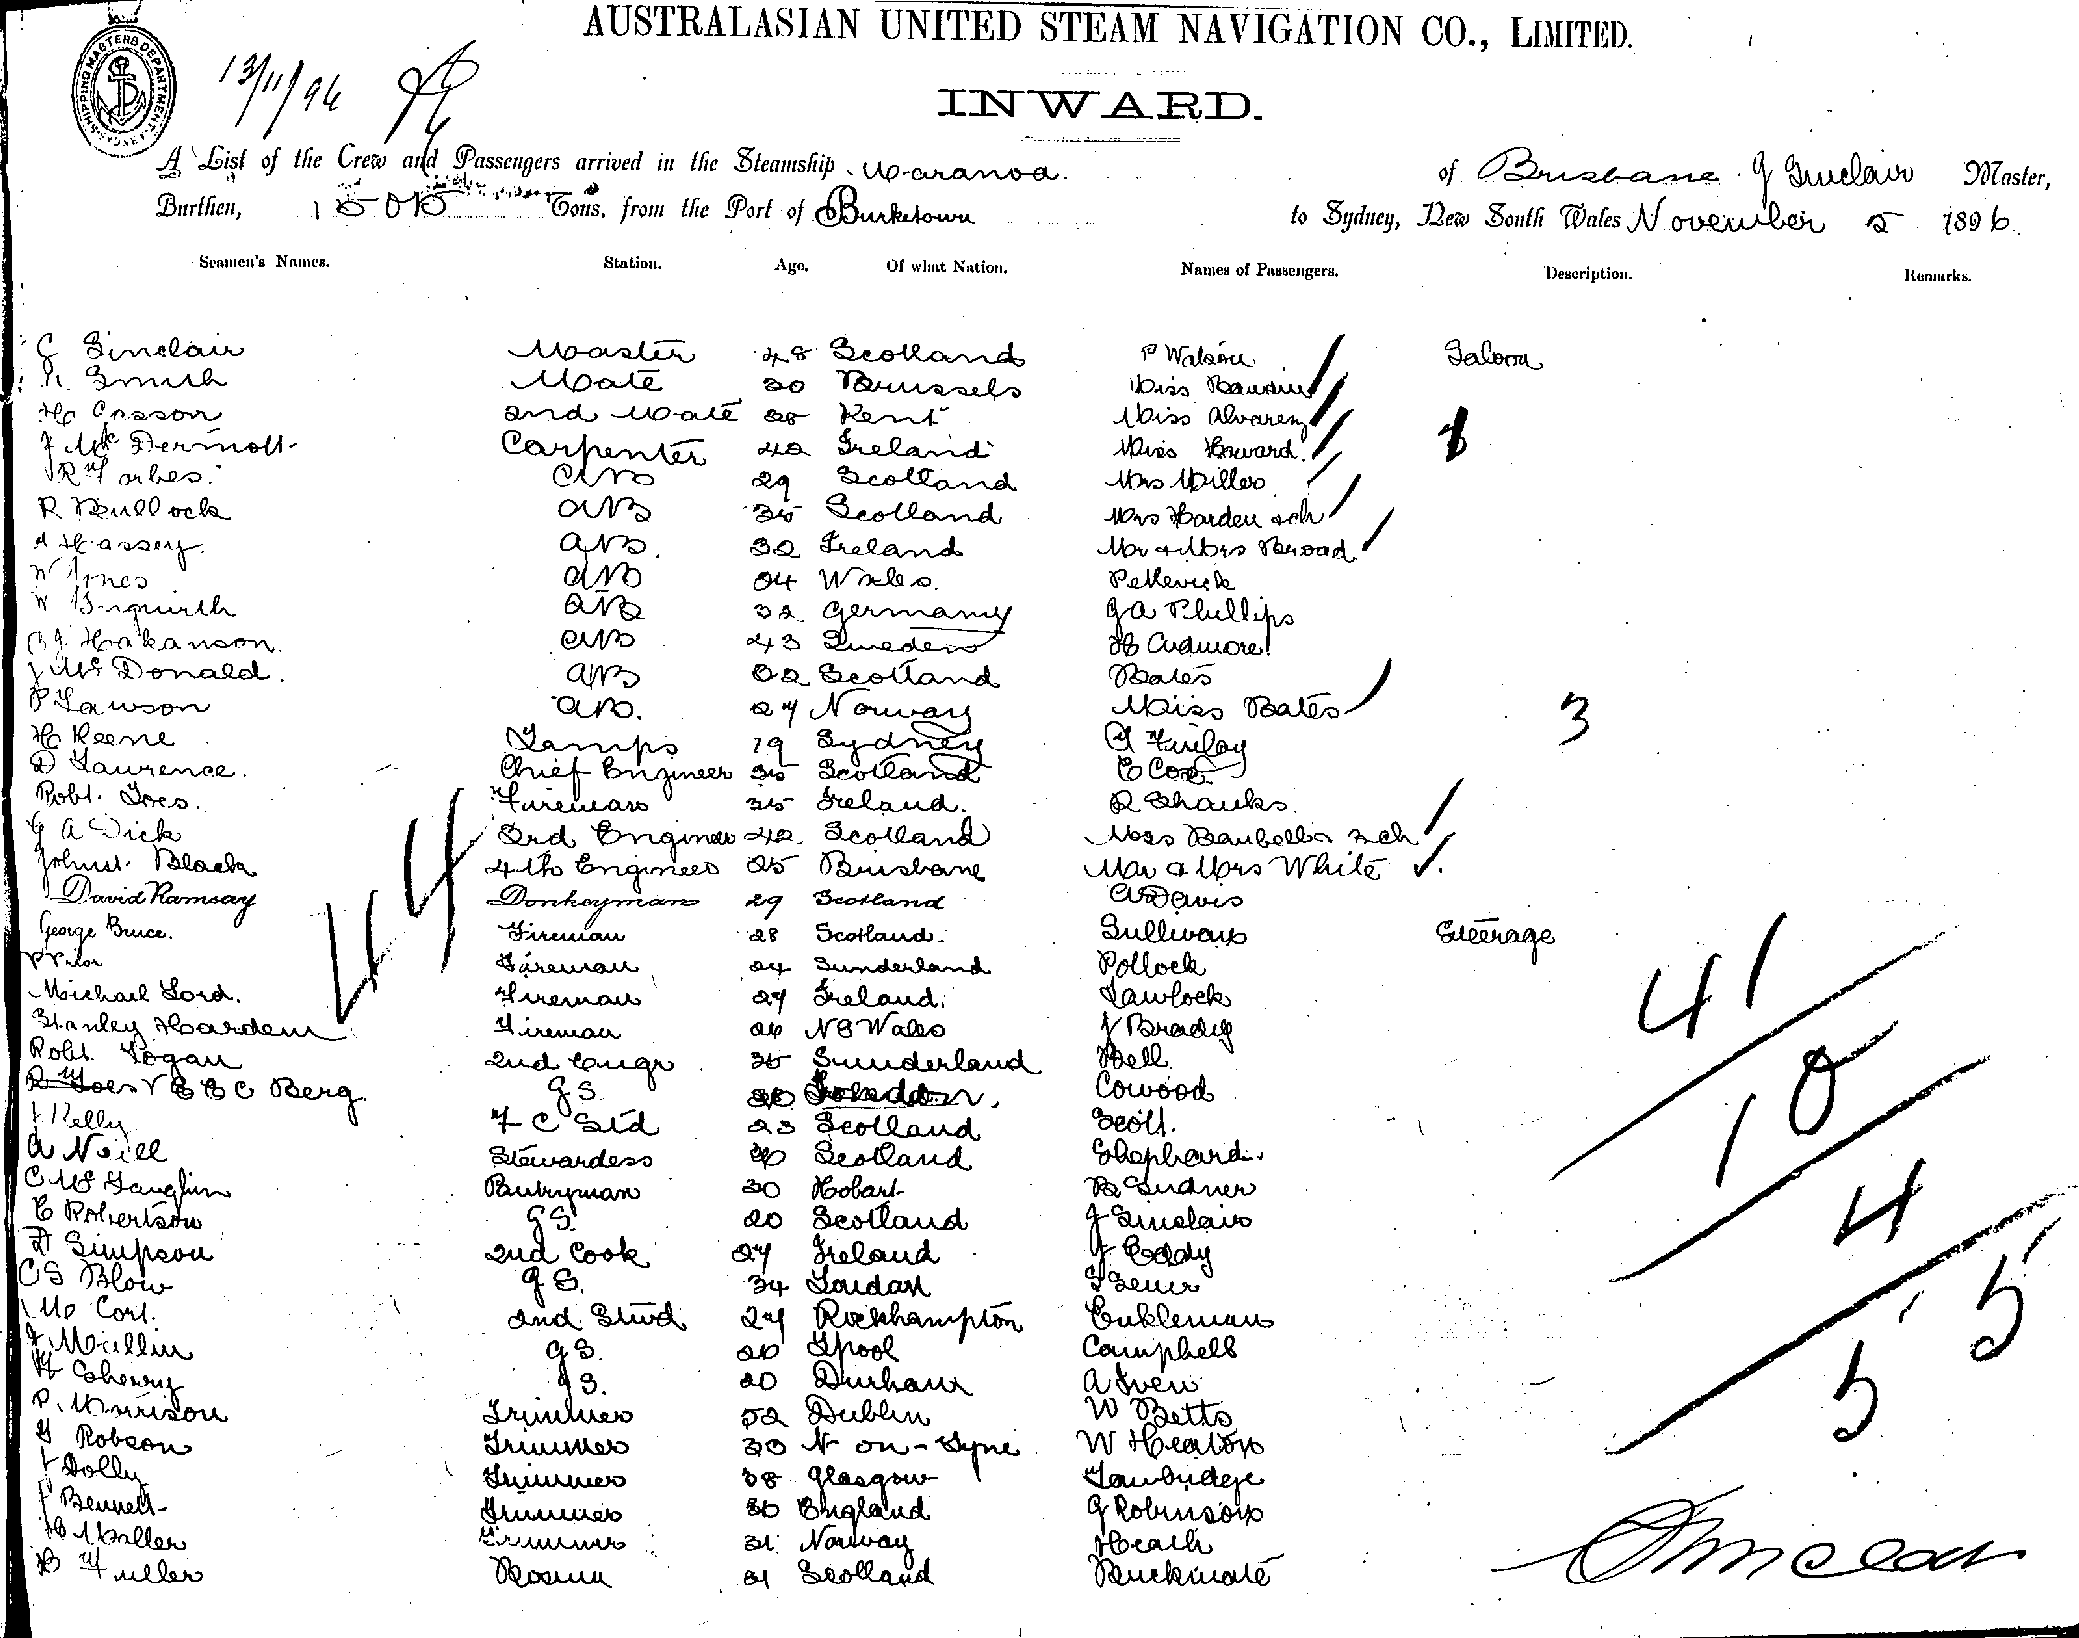 AUSTRALASIAN UNITED STEAM NAVIGATION CO., LIMITED.
SHIPPING MASTERS DEPARTMENT
13/11/96
INWARD.
A List of the Crew and Passengers arrived in the Steamship Maranoa. of Brisbane J Sinclair Master,
Burthen, 1505 Tons, from the Port of Burketown to Sydney, New South Wales November 5 1896.
Seamen's Names. Station. Age. Of what Nation. Names of Passengers. Description. Remarks.
Sinclair Master 48 Scotland P Watson Saloon
Smith Mate 30 Brussels Miss
H Casson 2nd Mate 28 Kent Miss Alvarenz
J McDermott Carpenter 42 Ireland Miss Howard 8
R Forbes AB 29 Scotland Mrs Miller
R Bullock AB 35 Scotland Mrs Harden & ch
Hassey AB. 32 Ireland Mr & Mrs Broad
W Jones AB 24 Wales. Petherick
W AB 32 Germany GA Phillips
Hakanson. AB 43 Sweden H Cudmore
J McDonald. AB 22 Scotland Bates
P Lawson AB. 27 Norway Miss Bates 3
H Keene Lamps 19 Sydney Finlay
D Laurence. Chief Engineer 35 Scotland E Cox
Robt. Joes. Fireman 35 Ireland. R Shanks.
G A Dick 3rd Engineer 42 Scotland 2 ch
Johnst. Black 4th Engineer 25 Brisbane Mr & Mrs White
David Ramsay Donkeyman 29 Scotland A Davis
George Bruce. Fireman 28 Scotland. Sullivan Steerage
Prior Fireman 24 Sunderland Pollock
Michael Lord. Fireman 27 Ireland. Lawlock 41
Stanley Harden Fireman 26 NS Wales J Brady
44
Robt. Logan 2nd Engr 35 Sunderland Bell
E E C Berg GS. London. Cowood 10
Kelly F C Std 23 Scotland Scott.
A Neill Stewardess Scotland Shephard.
C McLaughlin Pantryman 30 Hobart B Gardner 4
E Robertson GS. 20 Scotland J Sinclair
D Simpson 2nd Cook 27 Ireland J Eddy
CS Blow GS. 34 London
Mc Cort. 2nd Stwd 24 Rockhampton Enkleman 55
J Mullin GS. 20 Lpool Campbell
Cherry GS. 20 Durham A Iven
P. Morrison Trimmer 52 Dublin W Betts 5
G Robson Trimmer 30 N on-Tyne W Heaton
Dolly Trimmer 38 Glasgow Tanbridge
Bennett Trimmer 30 England G Robinson
Miller Trimmer 31 Norway Heath
B Fuller Bosun 31 Scotland Ruckmate
J Sinclair